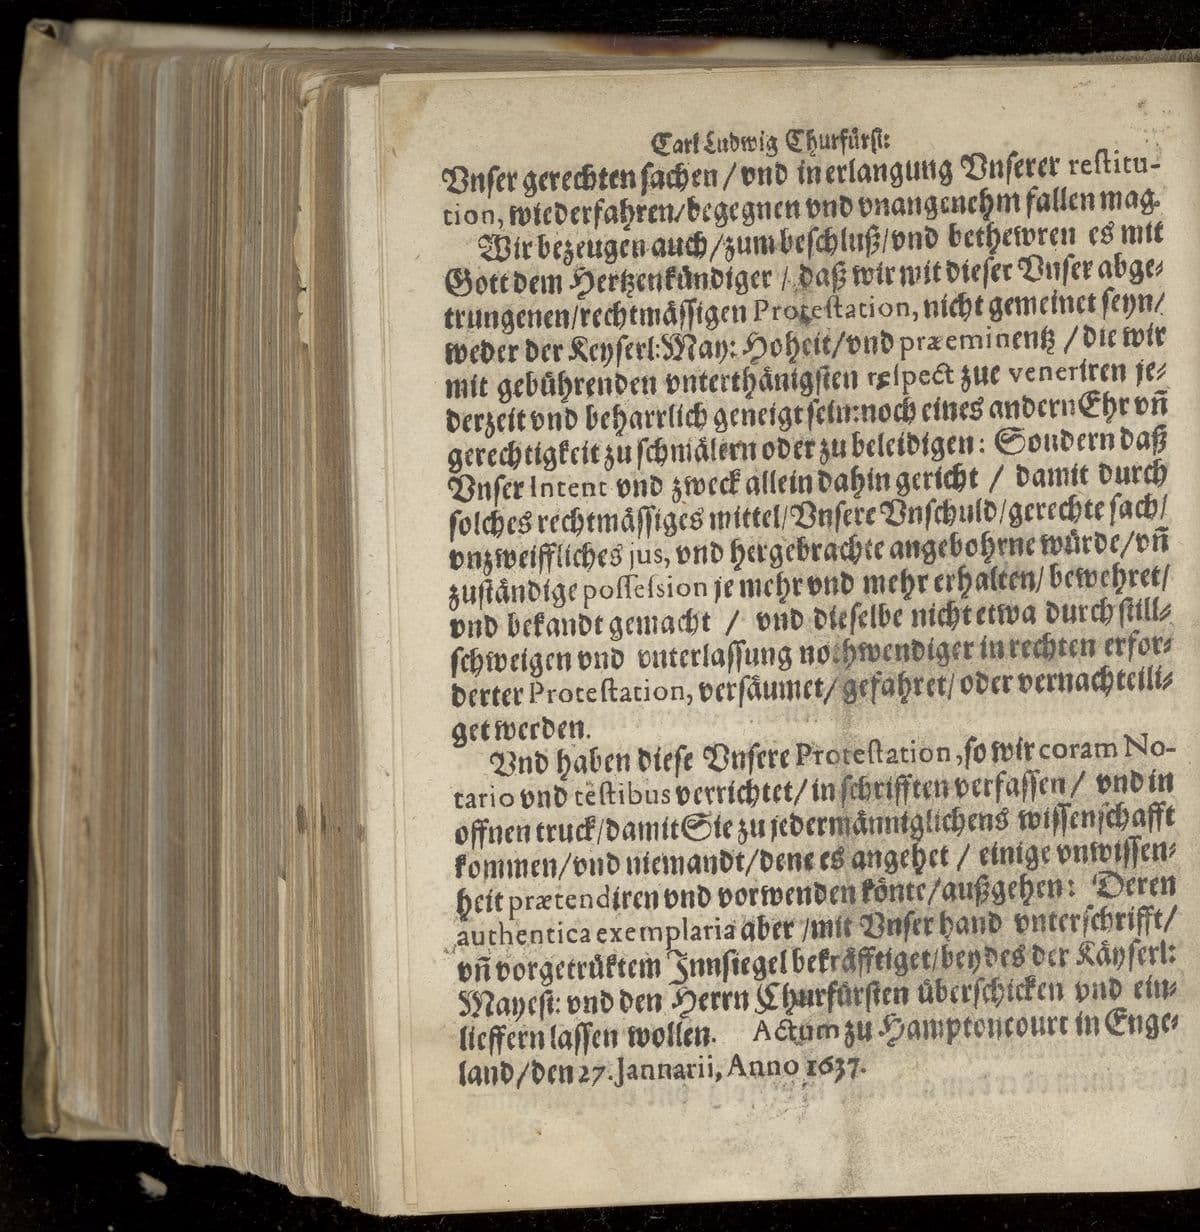 Carl Ludwig Churfürst:
Vnser gerechten sachen / vnd in erlangung Vnserer restitu-
tion, wiederfahren/ begegnen vnd vnangenehm fallen mag.
Wir bezeugen auch / zum beschluß / vnd bethewren es mit
Gott dem Hertzenkündiger / daß wir mit dieser Vnser abge-
trungenen/ rechtmässigen Protestation, nicht gemeinet seyn/
weder der Keyserl: May: Hoheit / vnd præeminentz / die wir
mit gebührenden vnterthänigsten respect zue veneriren je-
derzeit vnd beharrlich geneigt sein: noch eines andern Ehr vñ
gerechtigkeit zu schmälern oder zu beleidigen: Sondern daß
Vnser Intent vnd zweck allein dahin gericht / damit durch
solches rechtmässiges mittel / Vnsere Vnschuld / gerechte sach/
vnzweiffliches jus, vnd hergebrachte angebohrne würde/ vñ
zuständige possession je mehr vnd mehr erhalten/ bewehret/
vnd bekandt gemacht / vnd dieselbe nicht etwa durch still-
schweigen vnd vnterlassung nothwendiger in rechten erfor-
derter Protestation, versäumet/ gefahret/ oder vernachteili-
get werden.
Vnd haben diese Vnsere Protestation, so wir coram No-
tario vnd testibus verrichtet/ in schrifften verfassen / vnd in
offnen truck/ damit Sie zu jedermänniglichens wissenschafft
kommen/ vnd niemandt/ dene es angehet / einige vnwissen-
heit prætendiren vnd vorwenden könte/ außgehen: Deren
authentica exemplaria aber / mit Vnser hand vnterschrifft/
vñ vorgetrüktem Innsiegel bekräfftiget/ beydes der Käyserl:
Mayest: vnd den Herrn Churfürsten überschicken vnd ein-
lieffern lassen wollen. Actum zu Hamptoncourt in Enge-
land/ den 27. Jannarii, Anno 1637.